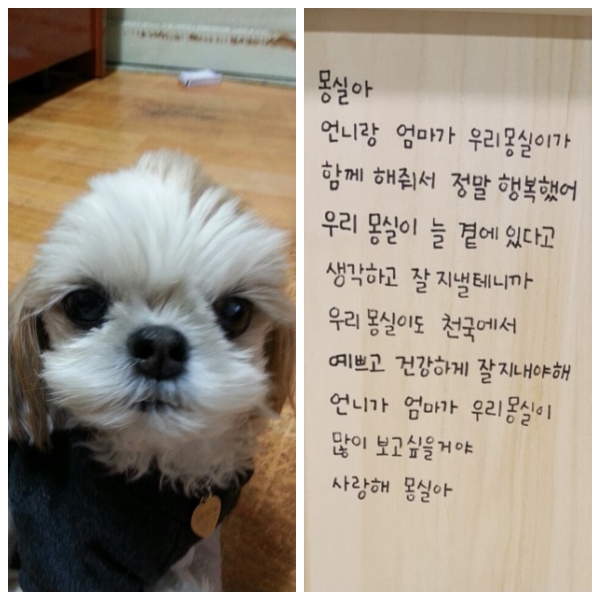 몽실아
언니랑 엄마가 우리몽실이가
함께 해줘서 정말 행복했어
우리 몽실이 늘 곁에 있다고
생각하고 잘 지낼테니까
우리 몽실이도 천국에서
예쁘고 건강하게 잘지내야해
언니가 엄마가 우리몽실이
많이 보고싶을거야
사랑해 몽실아